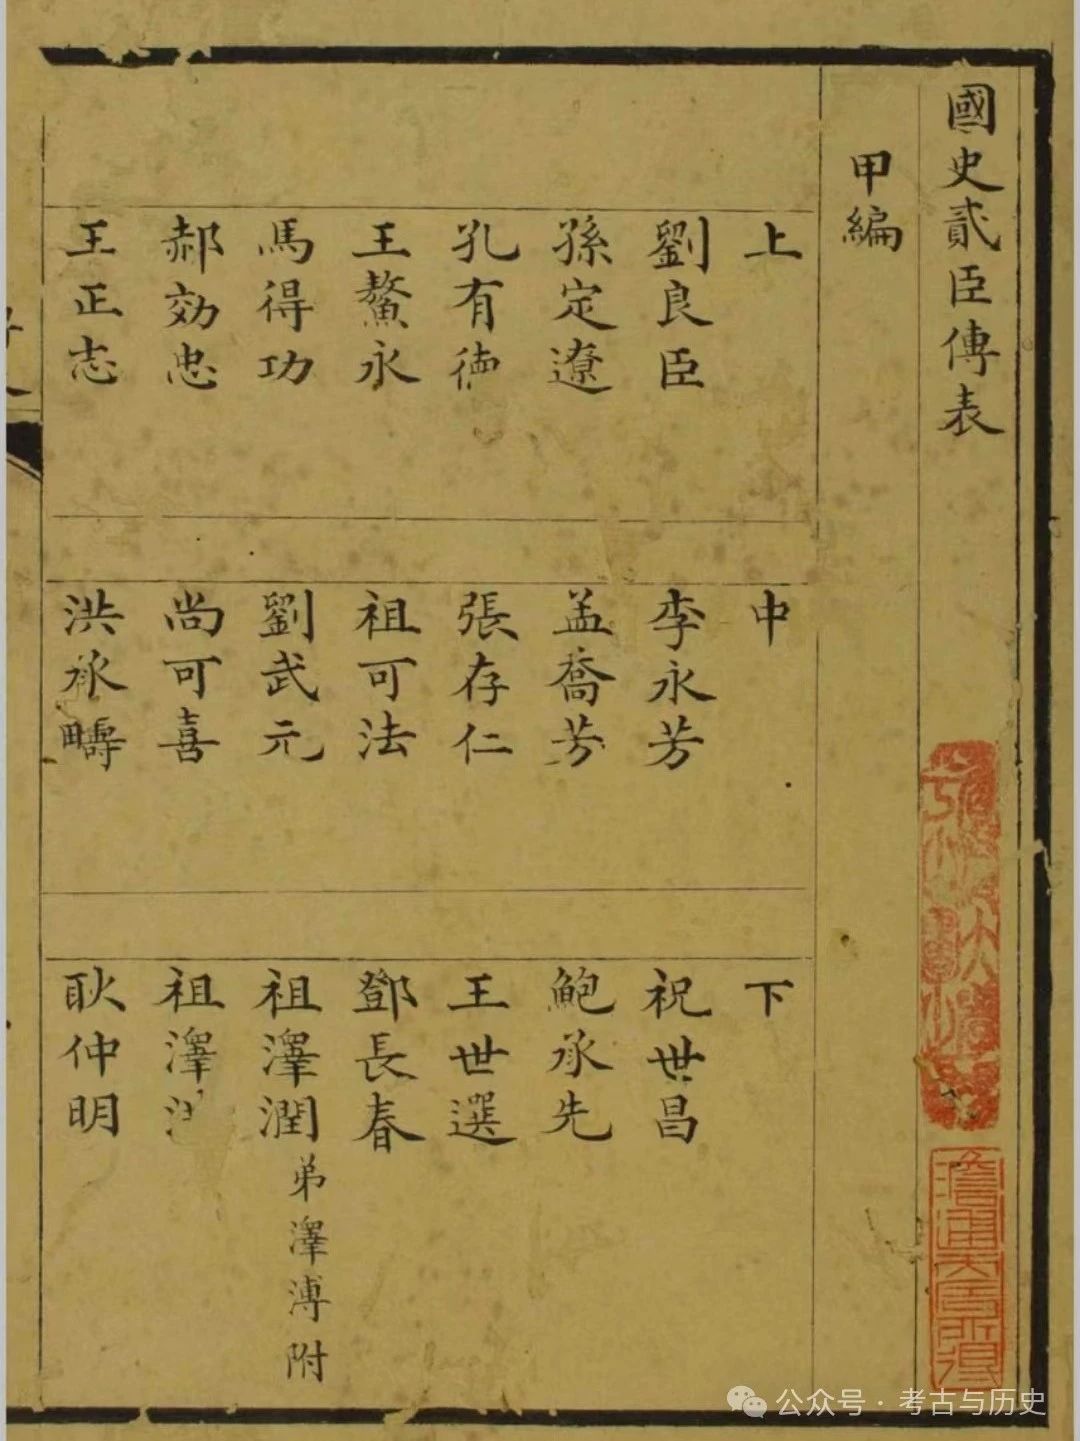 國史貳臣傳表
甲編
上
劉良臣
孫定遼
孔有德
王鰲永
馬得功
郝効忠
王正志
中
李永芳
孟喬芳
張存仁
祖可法
劉武元
尚可喜
洪承疇
下
祝世昌
鮑承先
王世選
鄧長春
祖澤潤 弟澤溥附
祖澤
耿仲明
公众号·考古与历史